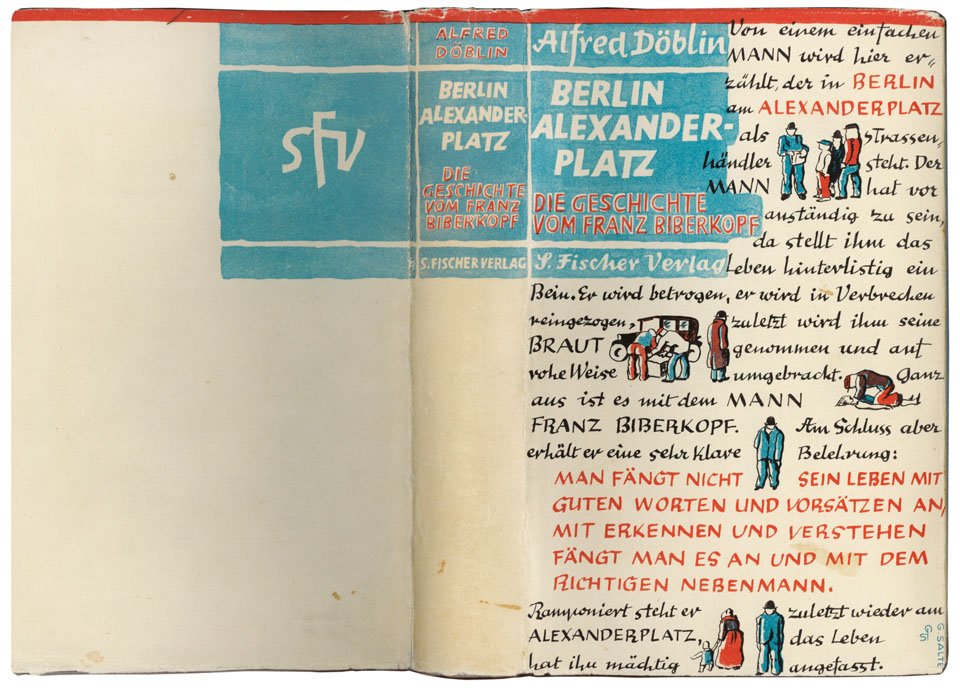 SFV
ALFRED
DÖBLIN
BERLIN
ALEXANDER-
PLATZ
DIE
GESCHICHTE
VOM FRANZ
BIBERKOPF
S. FISCHER VERLAG
Alfred Döblin
BERLIN
ALEXANDER-
PLATZ
DIE GESCHICHTE
VOM FRANZ BIBERKOPF
S. Fischer Verlag
Von einem einfachen
MANN wird hier er=
zählt, der in BERLIN
am ALEXANDERPLATZ
als Strassen=
händler steht. Der
MANN hat vor
anständig zu sein,
da stellt ihm das
Leben hinterlistig ein
Bein. Er wird betrogen, er wird in Verbrechen
reingezogen, zuletzt wird ihm seine
BRAUT genommen und auf
rohe Weise umgebracht. Ganz
aus ist es mit dem MANN
FRANZ BIBERKOPF. Am Schluss aber
erhält er eine sehr klare Belehrung:
MAN FÄNGT NICHT SEIN LEBEN MIT
GUTEN WORTEN UND VORSÄTZEN AN,
MIT ERKENNEN UND VERSTEHEN
FÄNGT MAN ES AN UND MIT DEM
RICHTIGEN NEBENMANN.
Ramponiert steht er zuletzt wieder am
ALEXANDERPLATZ, das Leben
hat ihn mächtig angefasst.
G. SALTE